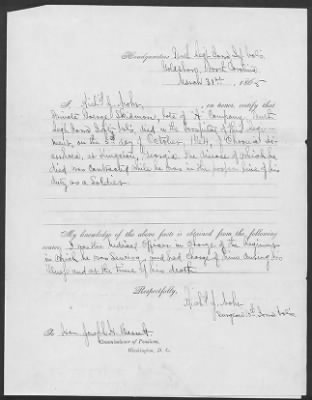 Headquarters Ninth Regt Iowa Inf Vols
Goldsboro, North Carolina
March 30th, 1865
I, on honor, certify that
Private George late of "A" Company, Ninth
Regt Iowa Infty Vols, died in the Hospital of the Regi-
ment, on the day of October, 1864, of Chronic
at Kingston, Georgia. The disease of which he
died was contracted while he was in the proper line of his
duty as a Soldier.
My knowledge of the above facts is obtained from the following
source, I was the Medical Officer in charge of the Regiment
in which he was serving, and had charge of him during his
illness and at the time of his death
Respectfully,
Surgeon 9th Iowa Vols
To Hon Joseph H. Barrett
Commissioner of Pensions,
Washington, D. C.